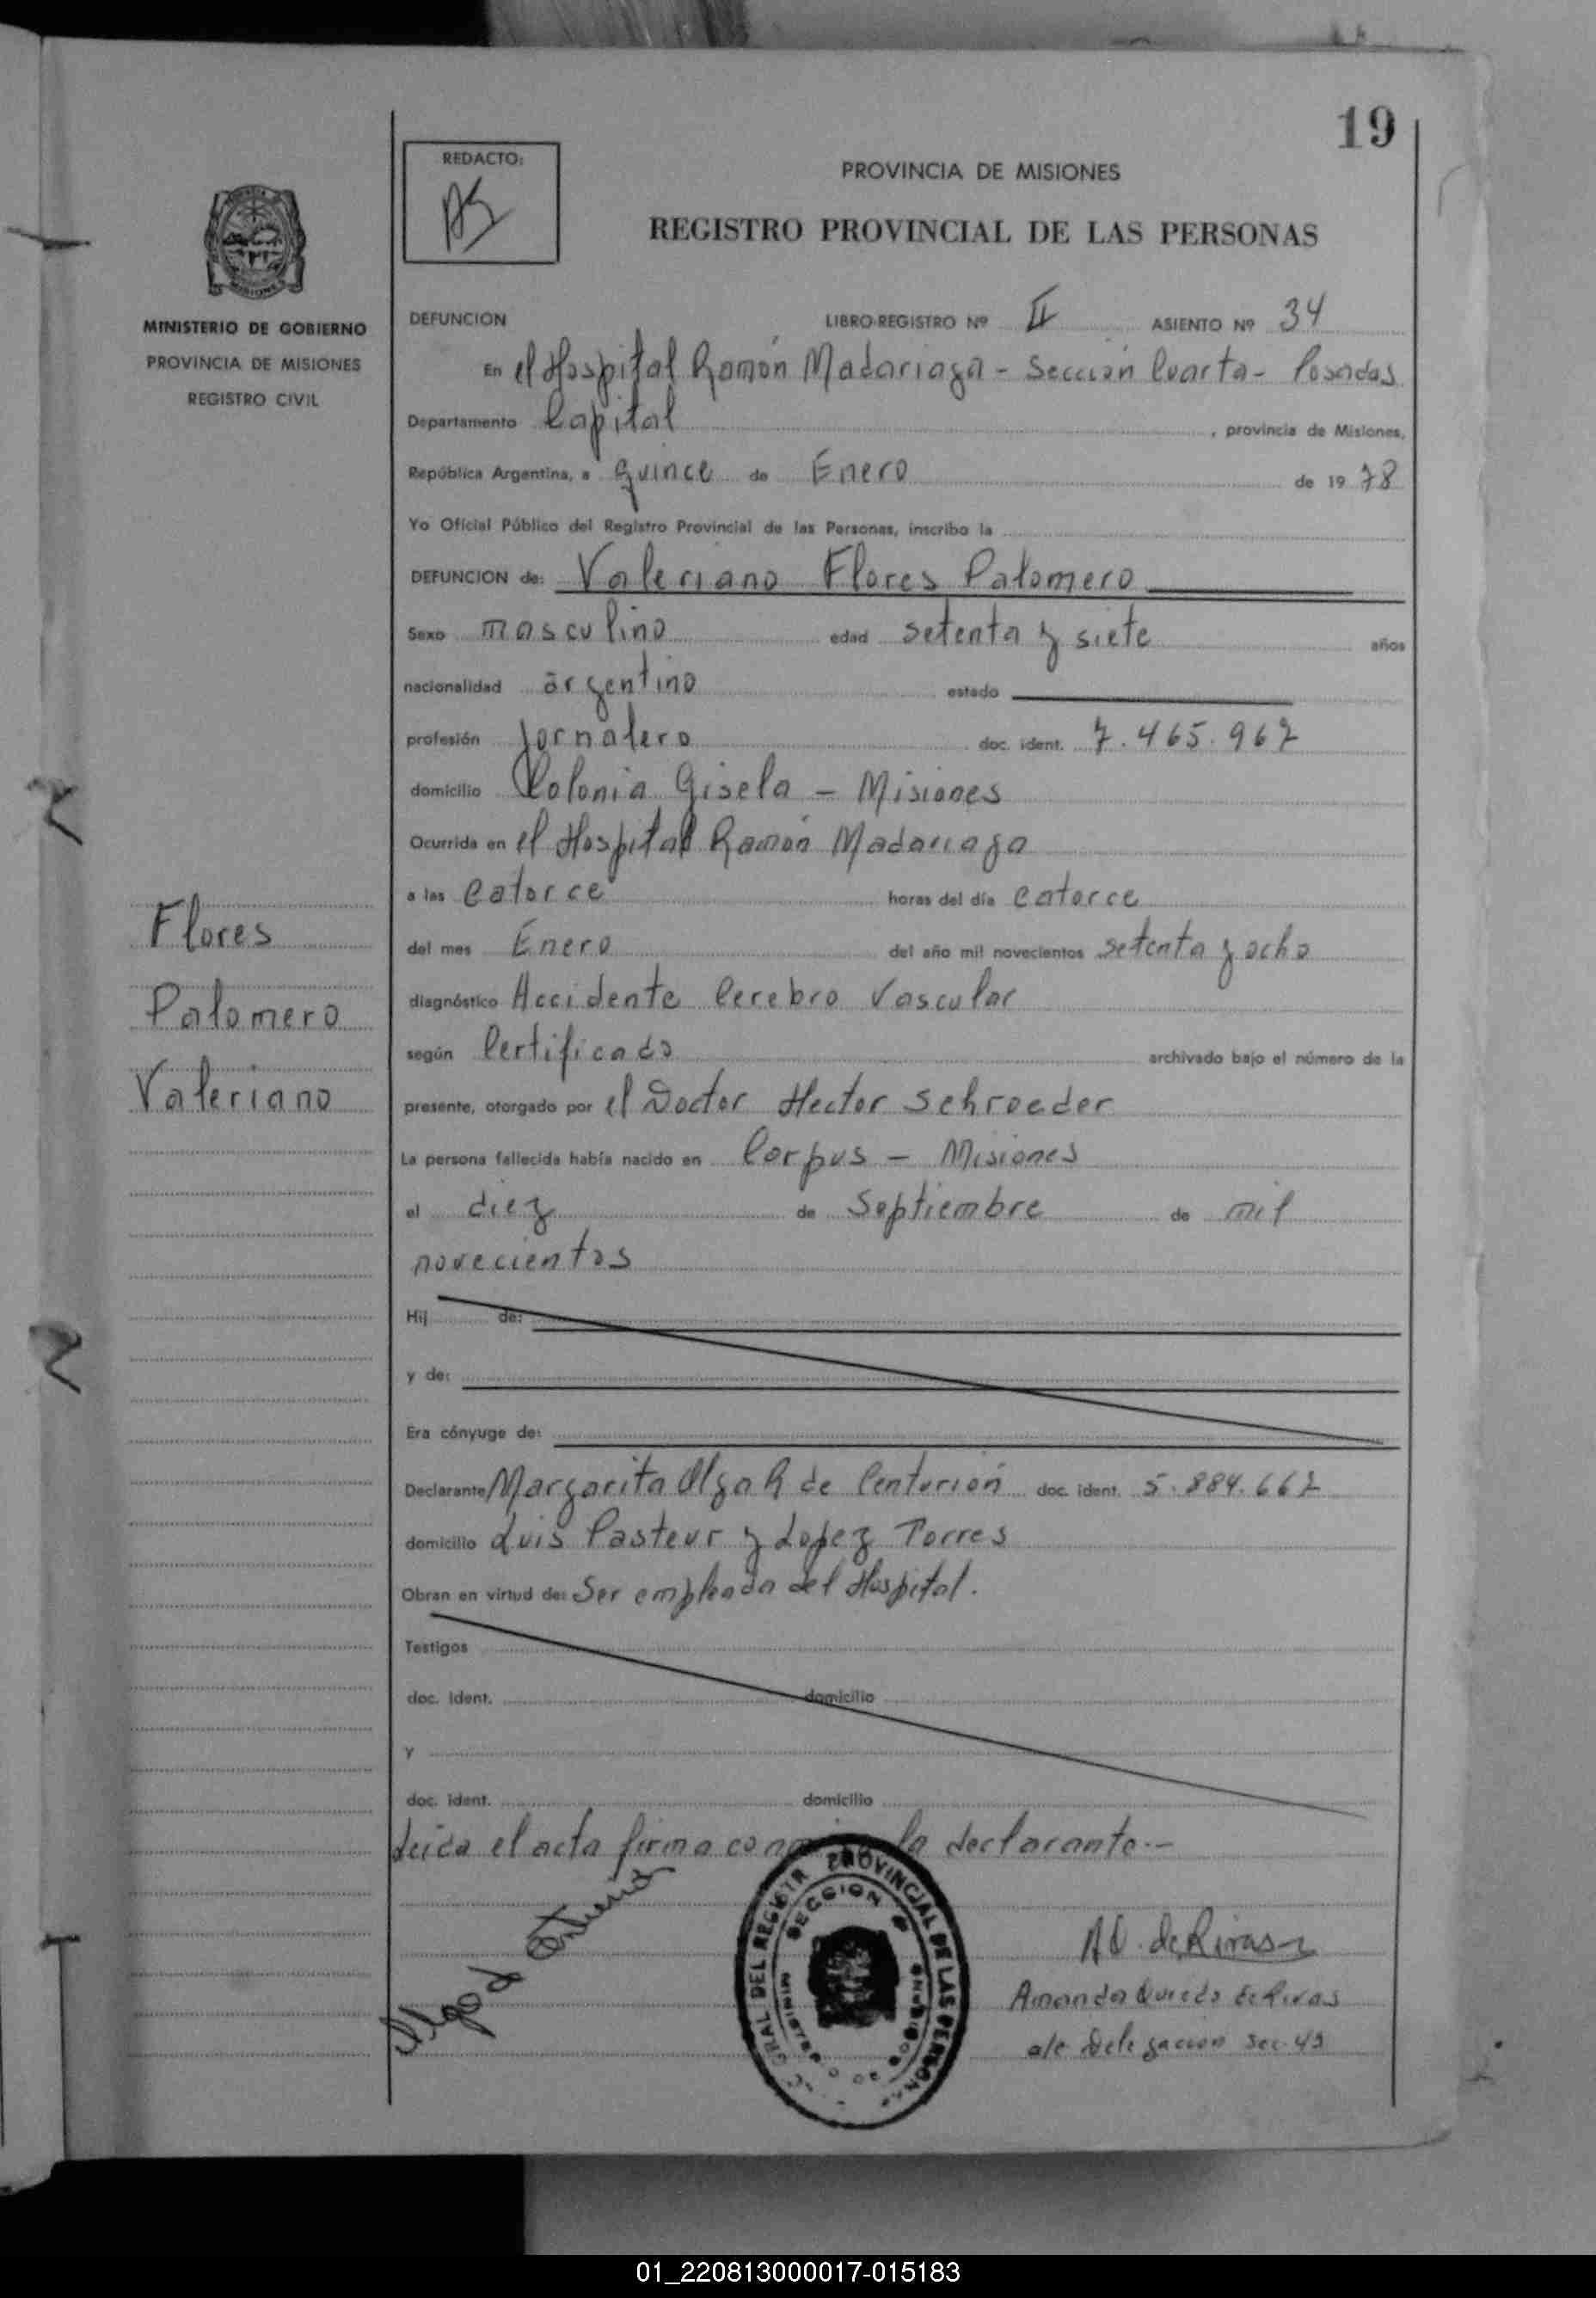 19
REDACTO:
PROVINCIA DE MISIONES
REGISTRO PROVINCIAL DE LAS PERSONAS
MINISTERIO DE GOBIERNO
PROVINCIA DE MISIONES
REGISTRO CIVIL
DEFUNCION LIBRO-REGISTRO Nº II ASIENTO Nº 34
En el Hospital Ramón Madariaga - Sección Cuarta - Posadas
Departamento Capital, provincia de Misiones,
República Argentina, a quince de Enero de 19 78
Yo Oficial Público del Registro Provincial de las Personas, inscribo la
DEFUNCION de: Valeriano Flores Palomero
Sexo masculino edad setenta y siete años
nacionalidad argentino estado
profesión Jornalero doc. ident. 7.465.967
domicilio Colonia Gisela - Misiones
Ocurrida en el Hospital Ramón Madariaga
a las catorce horas del día catorce
Flores
del mes Enero del año mil novecientos setenta y ocho
diagnóstico Accidente Cerebro Vascular
Palomero
según Certificado archivado bajo el número de la
Valeriano
presente, otorgado por el Doctor Hector Schroeder
La persona fallecida había nacido en Corpus - Misiones
el diez de Septiembre de mil
novecientos
Hij de:
y de:
Era cónyuge de:
Declarante Margarita Olga R de Centurión doc. ident. 5.884.662
domicilio Luis Pasteur y Lopez Torres
Obran en virtud de: Ser empleada del Hospital.
Testigos
doc. ident. domicilio
y
doc. ident. domicilio
Leida el acta firma la declarante.-
Olga de Centurión
GRAL DEL REGISTR PROVINCIAL DE LAS PERSON
SECCION
A Q. de Rivas
Amanda Quiedo de Rivas
a/c Delegacion Sec. 4ª
01_220813000017-015183